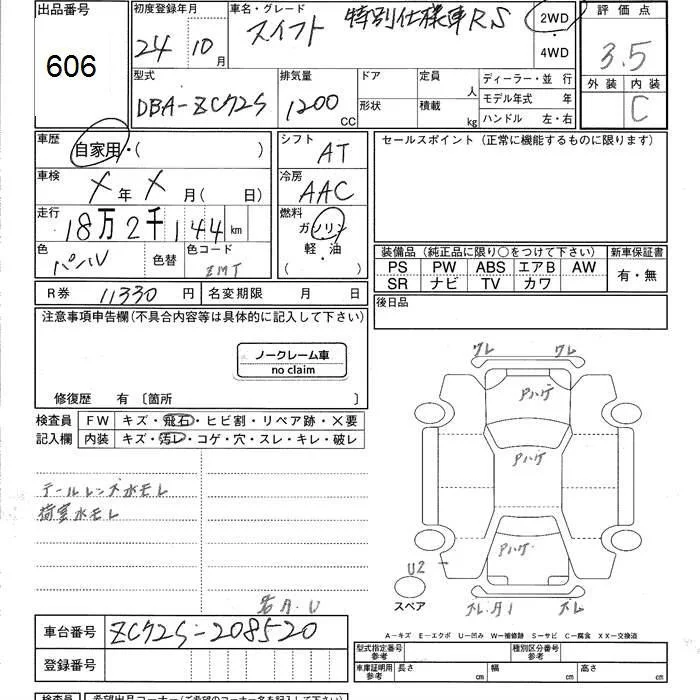 出品番号
606
初度登録年月
24年10月
車名・グレード
スイフト 特別仕様車RS
2WD
・
4WD
評価点
3.5
外装 内装
C
型式
DBA-ZC72S
排気量
1200
CC
ドア
形状
定員
人
積載
kg
ディーラー・並行
モデル年式 年
ハンドル 左・右
車歴
自家用・( )
車検
X年X月(日)
走行
18万2千144km
色
パール
色替
色コード
ZMT
シフト
AT
冷房
AAC
燃料
ガソリン
軽・油
( )
セールスポイント (正常に機能するものに限ります)
装備品 (純正品に限り○をつけて下さい)
新車保証書
PS PW ABS エアB AW
SR ナビ TV カワ
有・無
R券 11330円
名変期限 月 日
後日品
注意事項申告欄(不具合内容等は具体的に記入して下さい)
ノークレーム車
no claim
修復歴 有 〔箇所 〕
検査員 FW キズ・飛石・ヒビ割・リペア跡・X要
記入欄 内装 キズ・汚レ・コゲ・穴・スレ・キレ・破レ
テールレンズ水モレ
荷室水モレ
ワレ ワレ
Pハゲ
Pハゲ
Pハゲ
U2
スペア
A-キズ E-エクボ U-凹み W-補修跡 S-サビ C-腐食 XX-交換済
車台番号
ZC72S-208520
登録番号
型式指定番号
参考
種別区分番号
参考
車庫証明用
参考
長さ cm
幅 cm
高さ cm
検査員
希望出品コーナー(ご希望のコーナー名を記入